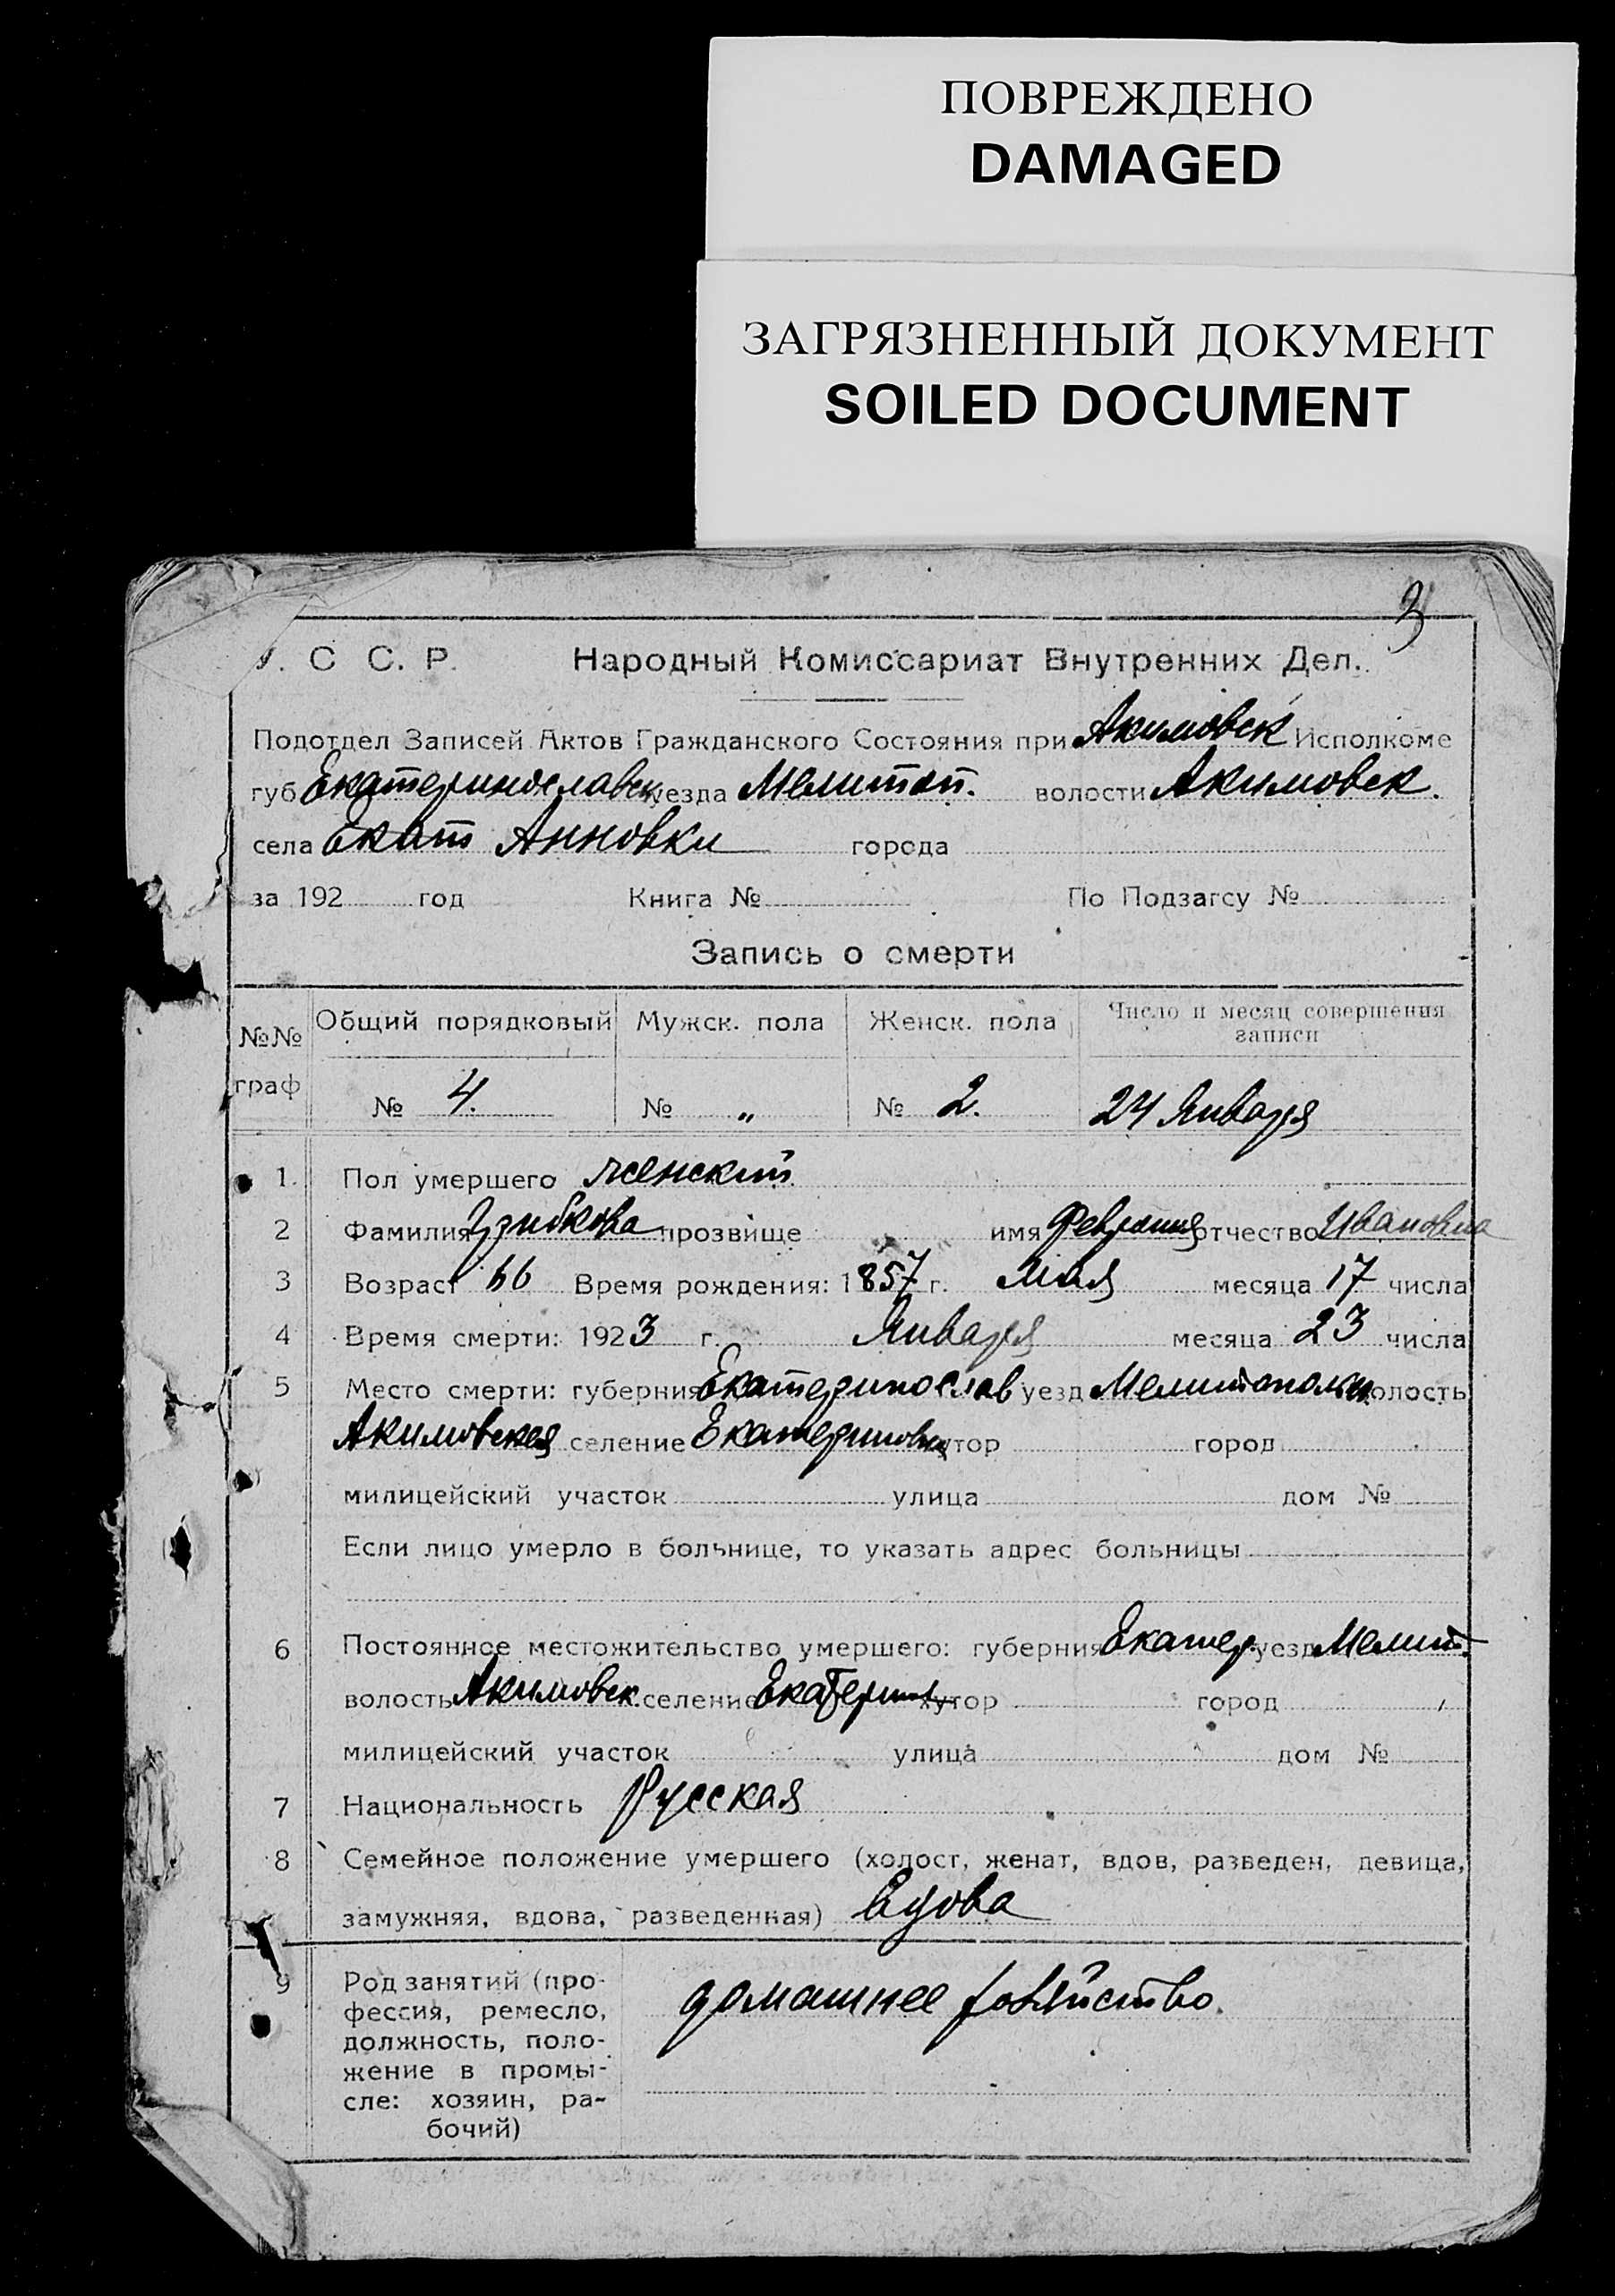 ПОВРЕЖДЕНО
DAMAGED
ЗАГРЯЗНЕННЫЙ ДОКУМЕНТ
SOILED DOCUMENT
3
У. С С. Р. Народный Комиссариат Внутренних Дел.
Подотдел Записей Актов Гражданского Состояния при Акимовск Исполкоме
губ Екатеринославск уезда Мелитоп. волости Акимовск.
села Екат Анновки города
за 192 год Книга № По Подзагсу №
Запись о смерти
№№ граф Общий порядковый Мужск. пола Женск. пола Число и месяц совершения записи
№ 4. № „ № 2. 24 Января
1. Пол умершего женский
2 Фамилия прозвище имя отчество Ивановна
3 Возраст 66 Время рождения: 1857 г. Мая месяца 17 числа
4 Время смерти: 1923 г. Января месяца 23 числа
5 Место смерти: губерния Екатеринослав уезд Мелитопольск волость
Акимовская селение Екатериновка хутор город
милицейский участок улица дом №
Если лицо умерло в больнице, то указать адрес больницы
6 Постоянное местожительство умершего: губерния Екатер. уезд Мелит.
волость Акимовск. селение Екатерин хутор город
милицейский участок улица дом №
7 Национальность Русская
8 Семейное положение умершего (холост, женат, вдов, разведен, девица,
замужняя, вдова, разведенная) Вдова
9 Род занятий (про-
фессия, ремесло,
должность, поло-
жение в промы-
сле: хозяин, ра-
бочий)
домашнее хозяйство.